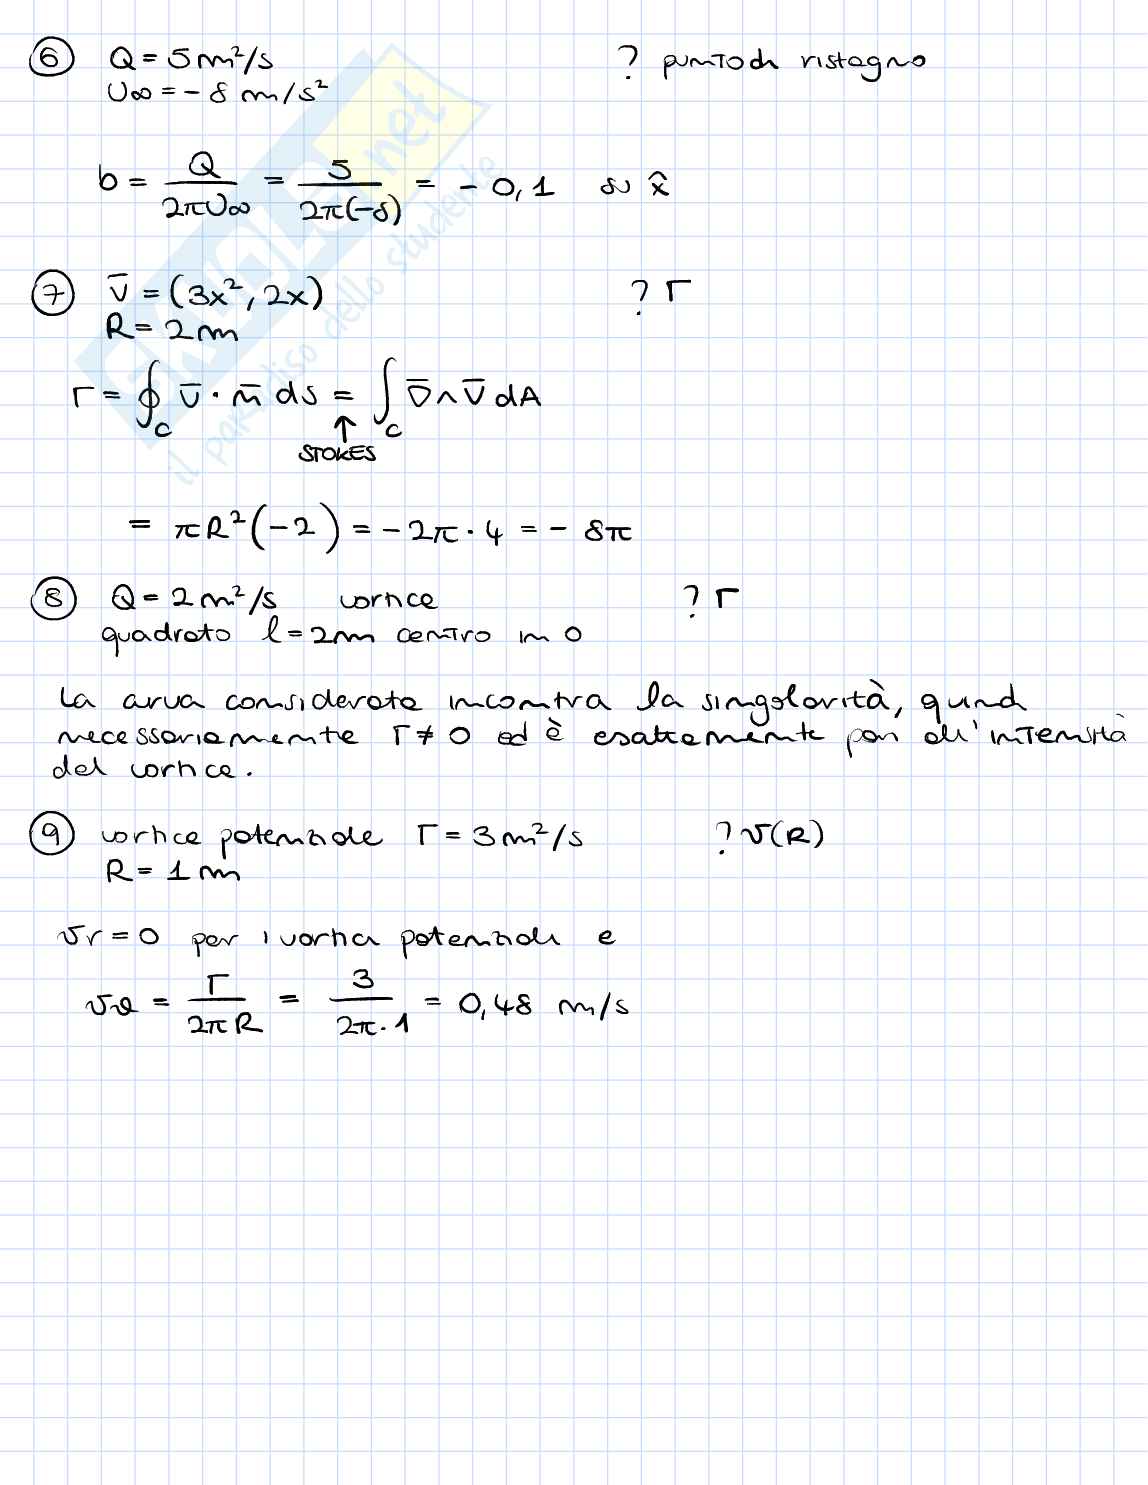 6 Q = 5 m²/s ? punto di ristagno
U∞ = - 8 m/s²
b = Q / 2πU∞ = 5 / 2π(-8) = - 0,1 su x̂
7 v̄ = (3x², 2x) ? Γ
R = 2m
Γ = ∮_C v̄ · n̄ ds = ∫_C ∇̄ ∧ v̄ dA
↑
STOKES
= πR²(-2) = -2π · 4 = - 8π
8 Q = 2 m²/s vortice ? Γ
quadrato l = 2m centro in 0
La curva considerata incontra la singolarità, quindi
necessariamente Γ ≠ 0 ed è esattamente pari all'intensità
del vortice.
9 vortice potenziale Γ = 3 m²/s ? v(R)
R = 1 m
vr = 0 per i vortici potenziali e
vθ = Γ / 2πR = 3 / 2π·1 = 0,48 m/s
SKUOLA.net
il paradiso dello studente